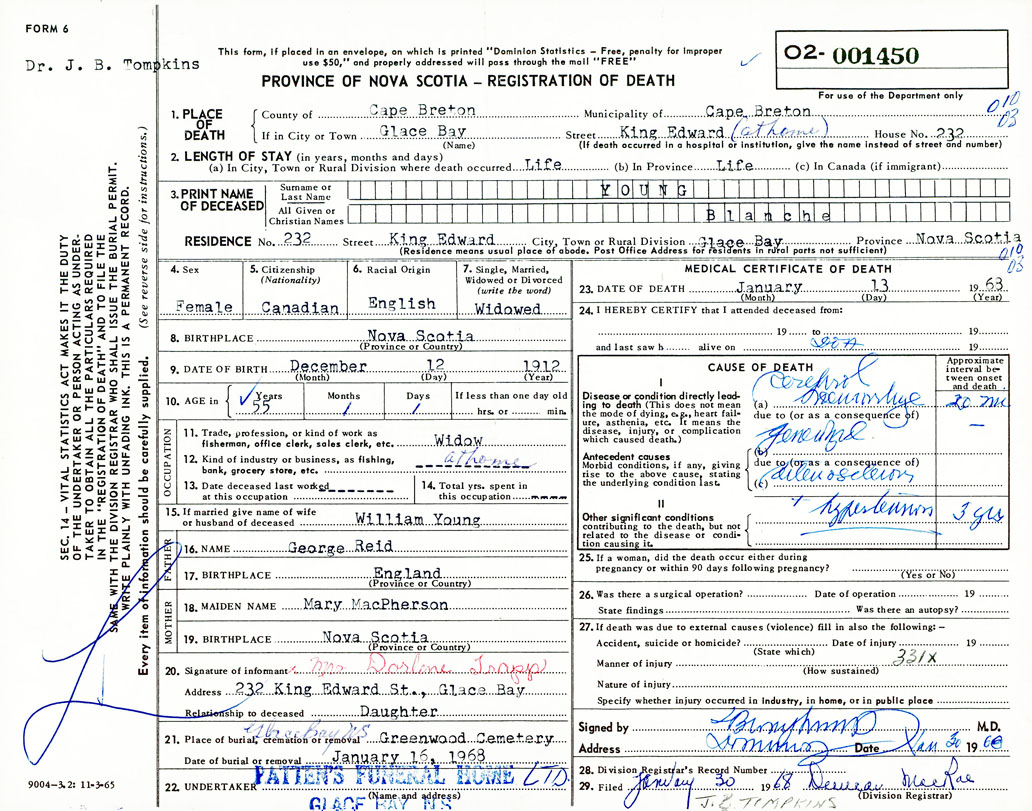 FORM 6
Dr. J. B. Tompkins
This form, if placed in an envelope, on which is printed "Dominion Statistics – Free, penalty for improper
use $50," and properly addressed will pass through the mail "FREE"
PROVINCE OF NOVA SCOTIA – REGISTRATION OF DEATH
O2- 001450
For use of the Department only
010
03
1. PLACE OF DEATH
County of Cape Breton Municipality of Cape Breton
If in City or Town Glace Bay Street King Edward (at home) House No. 232
(Name) (If death occurred in a hospital or institution, give the name instead of street and number)
2. LENGTH OF STAY (in years, months and days)
(a) In City, Town or Rural Division where death occurred Life (b) In Province Life (c) In Canada (if immigrant)
3. PRINT NAME OF DECEASED
Surname or Last Name YOUNG
All Given or Christian Names Blanche
RESIDENCE No. 232 Street King Edward City, Town or Rural Division Glace Bay Province Nova Scotia
(Residence means usual place of abode. Post Office Address for residents in rural parts not sufficient)
010
03
4. Sex
Female
5. Citizenship
(Nationality)
Canadian
6. Racial Origin
English
7. Single, Married,
Widowed or Divorced
(write the word)
Widowed
8. BIRTHPLACE Nova Scotia
(Province or Country)
9. DATE OF BIRTH December 12 1912
(Month) (Day) (Year)
10. AGE in Years Months Days If less than one day old
55 1 1 hrs. or min.
OCCUPATION
11. Trade, profession, or kind of work as
fisherman, office clerk, sales clerk, etc. Widow
12. Kind of industry or business, as fishing,
bank, grocery store, etc. at home
13. Date deceased last worked
at this occupation
14. Total yrs. spent in
this occupation
15. If married give name of wife
or husband of deceased William Young
FATHER
16. NAME George Reid
17. BIRTHPLACE England
(Province or Country)
MOTHER
18. MAIDEN NAME Mary MacPherson
19. BIRTHPLACE Nova Scotia
(Province or Country)
20. Signature of informant Mrs Darlene
Address 232 King Edward St., Glace Bay
Relationship to deceased Daughter
Glace Bay NS
21. Place of burial, cremation or removal Greenwood Cemetery
Date of burial or removal January 16, 1968
22. UNDERTAKER PATTEN'S FUNERAL HOME LTD
(Name and address)
GLACE BAY N'S
MEDICAL CERTIFICATE OF DEATH
23. DATE OF DEATH January 13 1968
(Month) (Day) (Year)
24. I HEREBY CERTIFY that I attended deceased from:
19 to 19
and last saw h alive on DOA 19
CAUSE OF DEATH
Approximate
interval be-
tween onset
and death
I
Disease or condition directly lead-
ing to death (This does not mean
the mode of dying, e.g., heart fail-
ure, asthenia, etc. It means the
disease, injury, or complication
which caused death.)
(a) Cerebral Hemorrhage
due to (or as a consequence of)
Antecedent causes
Morbid conditions, if any, giving
rise to the above cause, stating
the underlying condition last.
(b) Generalized
due to (or as a consequence of)
(c) arteriosclerosis
II
Other significant conditions
contributing to the death, but not
related to the disease or condi-
tion causing it.
hypertension 3 yrs
25. If a woman, did the death occur either during
pregnancy or within 90 days following pregnancy?
(Yes or No)
26. Was there a surgical operation? Date of operation 19
State findings Was there an autopsy?
27. If death was due to external causes (violence) fill in also the following: –
Accident, suicide or homicide? Date of injury 19
(State which)
331X
Manner of injury
(How sustained)
Nature of injury
Specify whether injury occurred in Industry, in home, or in public place
Signed by M.D.
Address Dominion Date Jan 30 1968
28. Division Registrar's Record Number
29. Filed January 30 1968 MacRae
(Division Registrar)
J. B. TOMPKINS
SEC. 14 – VITAL STATISTICS ACT MAKES IT THE DUTY
OF THE UNDERTAKER OR PERSON ACTING AS UNDER-
TAKER TO OBTAIN ALL THE PARTICULARS REQUIRED
IN THE "REGISTRATION OF DEATH" AND TO FILE THE
SAME WITH THE DIVISION REGISTRAR WHO SHALL ISSUE THE BURIAL PERMIT.
WRITE PLAINLY WITH UNFADING INK. THIS IS A PERMANENT RECORD.
Every item of information should be carefully supplied. (See reverse side for instructions.)
9004-3.2: 11-3-65